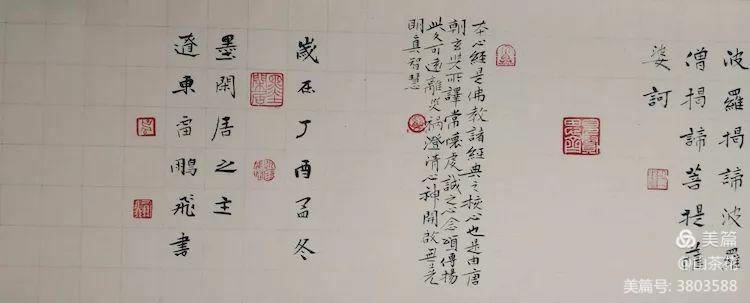 波羅揭諦波羅
僧揭諦菩提薩
婆訶
本心經是佛教諸經典之核心也是由唐
朝玄奘所譯常懷虔誠之心念頌傳揚
此文可遠離災禍澄清心神開啟
明真智慧
歲在丁酉孟冬
墨閑居之主
遼東雷鵬飛書
美篇
@山茶花
美篇号: 3803588